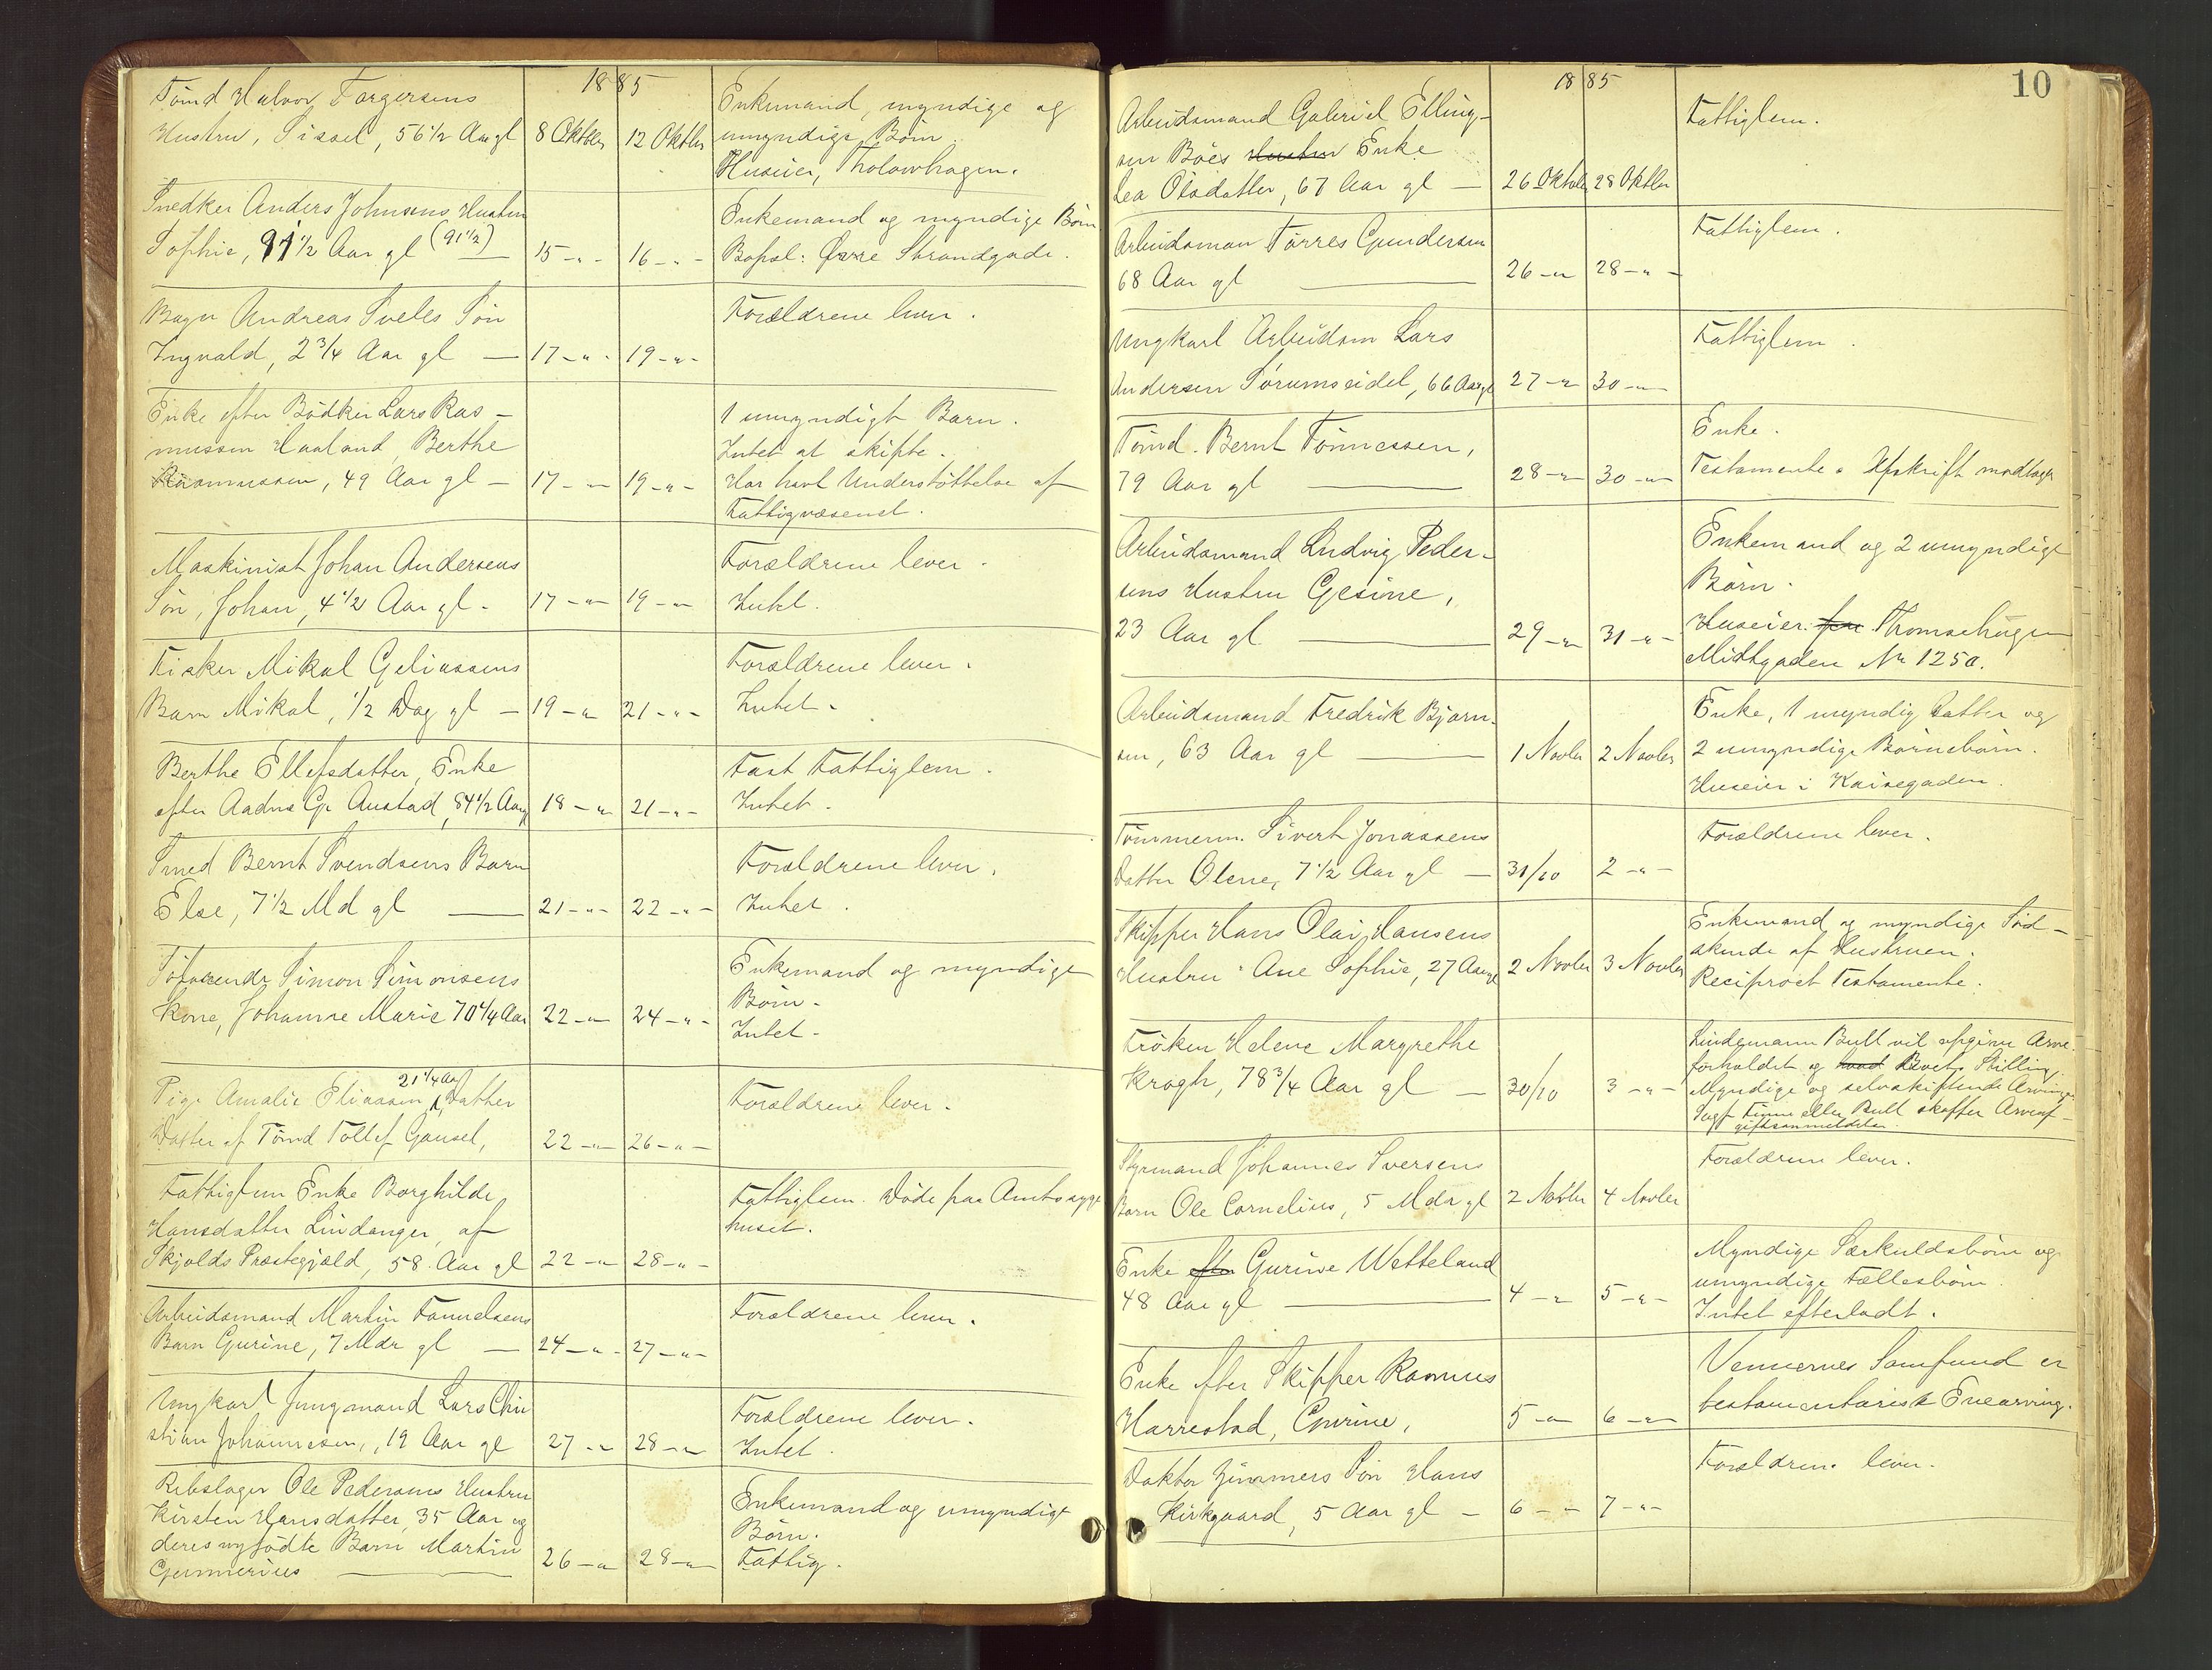 1885
Tömd Halvor Torgersens
Hustru, Sissel, 56 1/2 Aar gl 8 Oktbr 12 Oktbr
Enkemand, myndige og
umyndige Börn.
Huseier, Tholowhagen.
Snedker Anders Johnsens Hustru
Sophie, 91 1/2 Aar gl (91 1/2) 15 -"- 16 -"-
Enkemand og myndige Börn
Bopæl: Øvre Strandgade.
Bager Andreas Sveles Sön
Ingvald, 2 3/4 Aar gl — 17 -"- 19 -"-
Forældrene lever.
Enke efter Bödker Lars Ras-
mussen Haaland, Berthe
Rasmussen, 49 Aar gl — 17 -"- 19 -"-
1 umyndigt Barn.
Intet at skifte.
Har havt Understöttelse af
Fattigvæsenet.
Maskinist Johan Andersens
Sön, Johan, 4 1/2 Aar gl - 17 -"- 19 -"-
Forældrene lever.
Intet.
Fisker Mikal Geliassens
Barn Mikal, 1/2 Dag gl — 19 -"- 21 -"-
Forældrene lever.
Intet.
Berthe Ellefsdatter, Enke
efter Aadne Gr. Austad, 84 1/2 Aar g 18 -"- 21 -"-
Fast Fattiglem.
Intet.
Smed Bernt Svendsens Barn
Else, 7 1/2 Md gl — 21 -"- 22 -"-
Forældrene lever.
Intet.
Söfarende Simon Simonsens
Kone, Johanne Marie 70 1/4 Aar 22 -"- 24 -"-
Enkemand og myndige
Börn.
Intet.
21 1/4 Aar
Pige Amalie Eliassen, Datter
Datter af Tömd Tollef Gausel, 22 -"- 26 -"-
Forældrene lever.
Fattiglem Enke Borghilde
Hansdatter Lindanger, af
Skjolds Præstegjæld, 58 Aar gl 22 -"- 28 -"-
Fattiglem. Döde paa Amtssyge
huset.
Arbeidsmand Martin Tønnelsens
Barn Gurine, 7 Mdr gl — 24 -"- 27 -"-
Forældrene lever.
Ungkarl Jungmand Lars Chri
stian Johannesen, 19 Aar gl 27 -"- 28 -"-
Forældrene lever.
Intet.
Rebslager Ole Pedersens Hustru
Kirsten Hansdatter, 35 Aar og
deres nyfödte Barn Martin
Gunnerius — 26 -"- 28 -"-
Enkemand og umyndigt
Börn.
Fattig.
10
1885
Arbeidsmand Gabriel Elling-
sen Böes Hustru Enke
Lea Olsdatter, 67 Aar gl — 26 Oktober 28 Oktbr
Fattiglem.
Arbeidsman Tørres Gundersen
68 Aar gl — 26 -"- 28 -"-
Fattiglem.
Ungkarl Arbeidsm Lars
Andersen Sörumseidet, 66 Aar gl 27 -"- 30 -"-
Fattiglem.
Tömd. Bernt Tönnessen,
79 Aar gl — 28 -"- 30 -"-
Enke.
Testamente. Afskrift modtaget
Arbeidsmand Ludvig Peder-
sens Hustru Gesine,
23 Aar gl — 29 -"- 31 -"-
Enkemand og 2 umyndige
Börn.
Huseier paa Thomsehagen
Midtgaden No 125a.
Arbeidsmand Fredrik Bjørn-
sen, 63 Aar gl — 1 Novbr 2 Novbr
Enke, 1 myndig Datter og
2 umyndige Börnebörn.
Huseier i Kaisegaden.
Tömmerm. Sivert Jonassens
Datter Olene, 7 1/2 Aar gl — 31/10 2 -"-
Forældrene lever.
Skipper Hans Olai Hansens
Hustru Ane Sophie, 27 Aar gl 2 Novbr 3 Novbr
Enkemand og myndige Söd-
skende af Hustruen.
Reciproct Testamente.
Fröken Helene Margrethe
Krogh, 78 3/4 Aar gl — 30/10 3 -"-
Lindemann Bull vil opgive Arve-
forholdet og
Myndige og selvskiftende Arvinger
Sagf. eller Bull skaffer Arveaf-
giftsanmeldelse.
Styrmand Johannes Iversens
Barn Ole Cornelius, 5 Mdr gl 2 Novbr 4 Novbr
Forældrene lever.
Enke efter Gurine Wetteland
48 Aar gl — 4 -"- 5 -"-
Myndige Særkuldsbörn og
umyndige Fællesbörn.
Intet efterladt.
Enke efter Skipper Rasmus
Harrestad, Gurine, 5 -"- 6 -"-
Vennernes Samfund er
testamentarisk Enearving.
Doktor Zimmers Sön Hans
Kirkgaard, 5 Aar gl — 6 -"- 7 -"-
Forældrene lever.